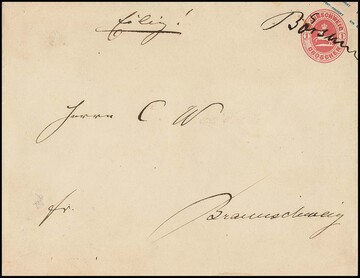 Eilig!
BRAUNSCHWEIG
1 1
GROSCHEN
Herrn C W
fr.
Braunschweig